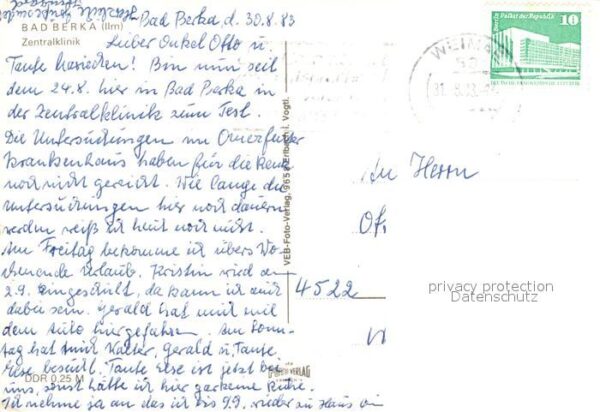 BAD BERKA (Ilm)
Zentralklinik
Bad Berka, d. 30.8.83
Lieber Onkel Otto u.
Tante Mariechen! Bin nun seit
dem 24.8. hier in Bad Berka in
der Zentralklinik zum Test.
Die Untersuchungen im Querfurter
Krankenhaus haben für die
noch nicht gereicht. Wie lange die
Untersuchungen hier noch dauern
werden weiß ich heut noch nicht.
Am Freitag bekomme ich übers Wo-
chenende Urlaub. Kerstin wird am
2.9. eingeschult, da kann ich mit
dabei sein. Gerald hat mich mit
dem Auto hergefahren. Am Sonn-
tag hat mich Walter, Gerald u. Tante
Else besucht. Tante Else ist jetzt bei
uns, sonst hätte ich hier gar keine Ruhe.
Ich nehme ja an das ich bis 9.9. wieder zu Haus bin
DDR 0,25 M
VEB-Foto-Verlag, 965 Erlbach i. Vogtl.
Palast der Republik
10
WEIMAR
An Herrn
4522
privacy protection
Datenschutz